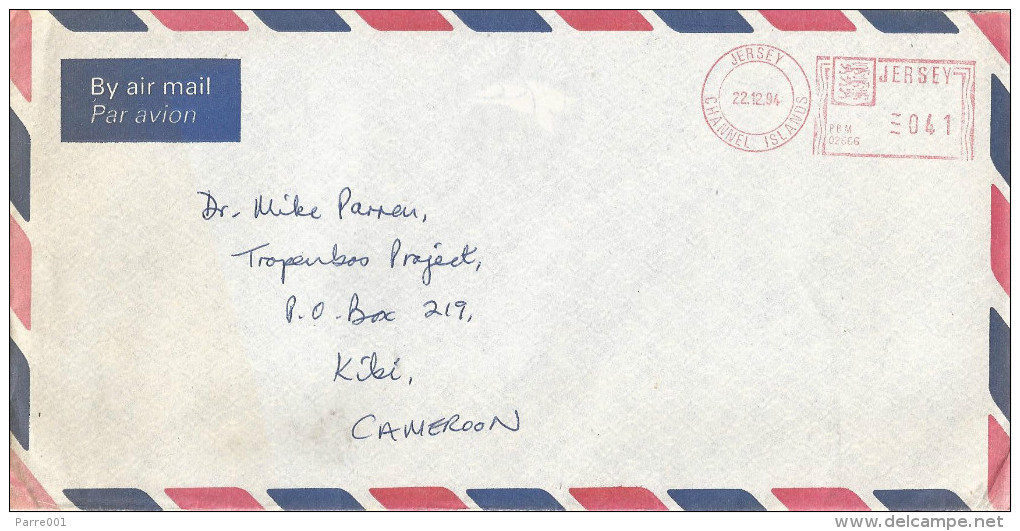 By air mail
Par avion
JERSEY
22.12.94
CHANNEL ISLANDS
JERSEY
041
PBM
02666
Dr. Mike Parren,
Tropenbos Project,
P.O. Box 219,
Kibi,
CAMEROON
Parre001
www.delcampe.net